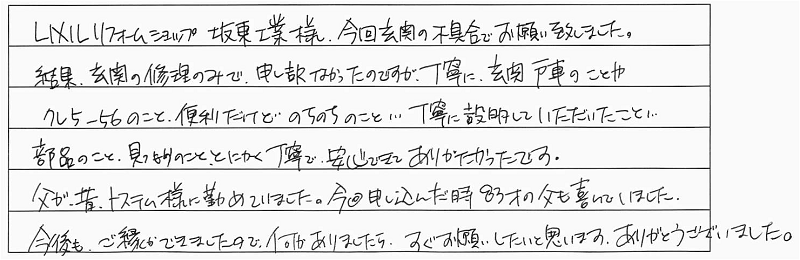 LIXILリフォームショップ 坂東工業様、今回玄関の不具合でお願い致しました。
結果、玄関の修理のみで、申し訳なかったのですが、丁寧に、玄関 戸車のことや
クレ5-56のこと、便利だけど のちのちのこと… 丁寧に説明していただいたこと…
部品のこと、見つもりのこと とにかく丁寧で、安心できて ありがたかったです。
父が、昔、トステム様に勤めていました。今回申し込んだ時 83才の父も喜んでいました。
今後も、ご縁ができましたので、何かありましたら、すぐお願いしたいと思います。ありがとうございました。